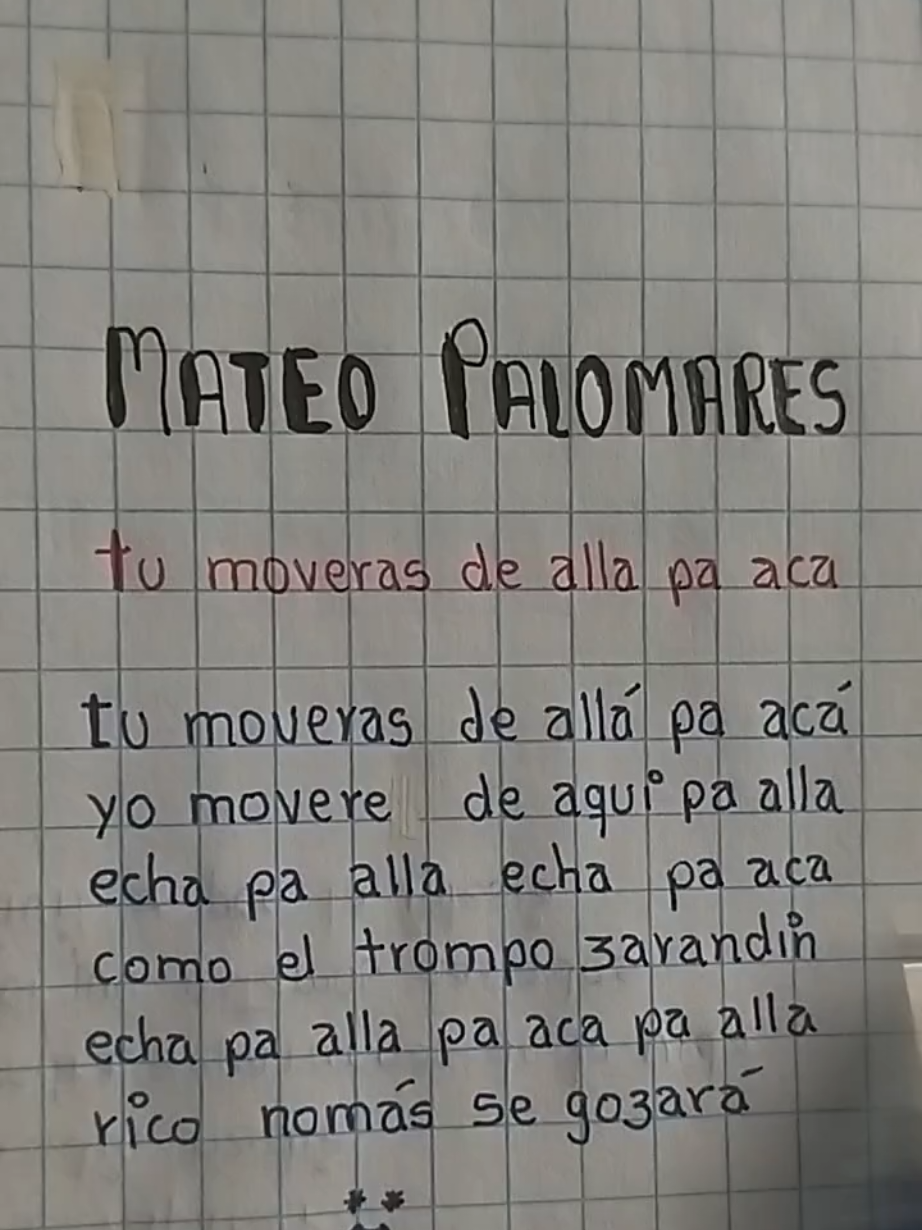 MATEO PALOMARES
tu moveras de alla pa aca
tu moveras de allá pa acá
yo movere de aqui pa alla
echa pa alla echa pa aca
como el trompo zarandin
echa pa alla pa aca pa alla
rico nomás se gozará
**